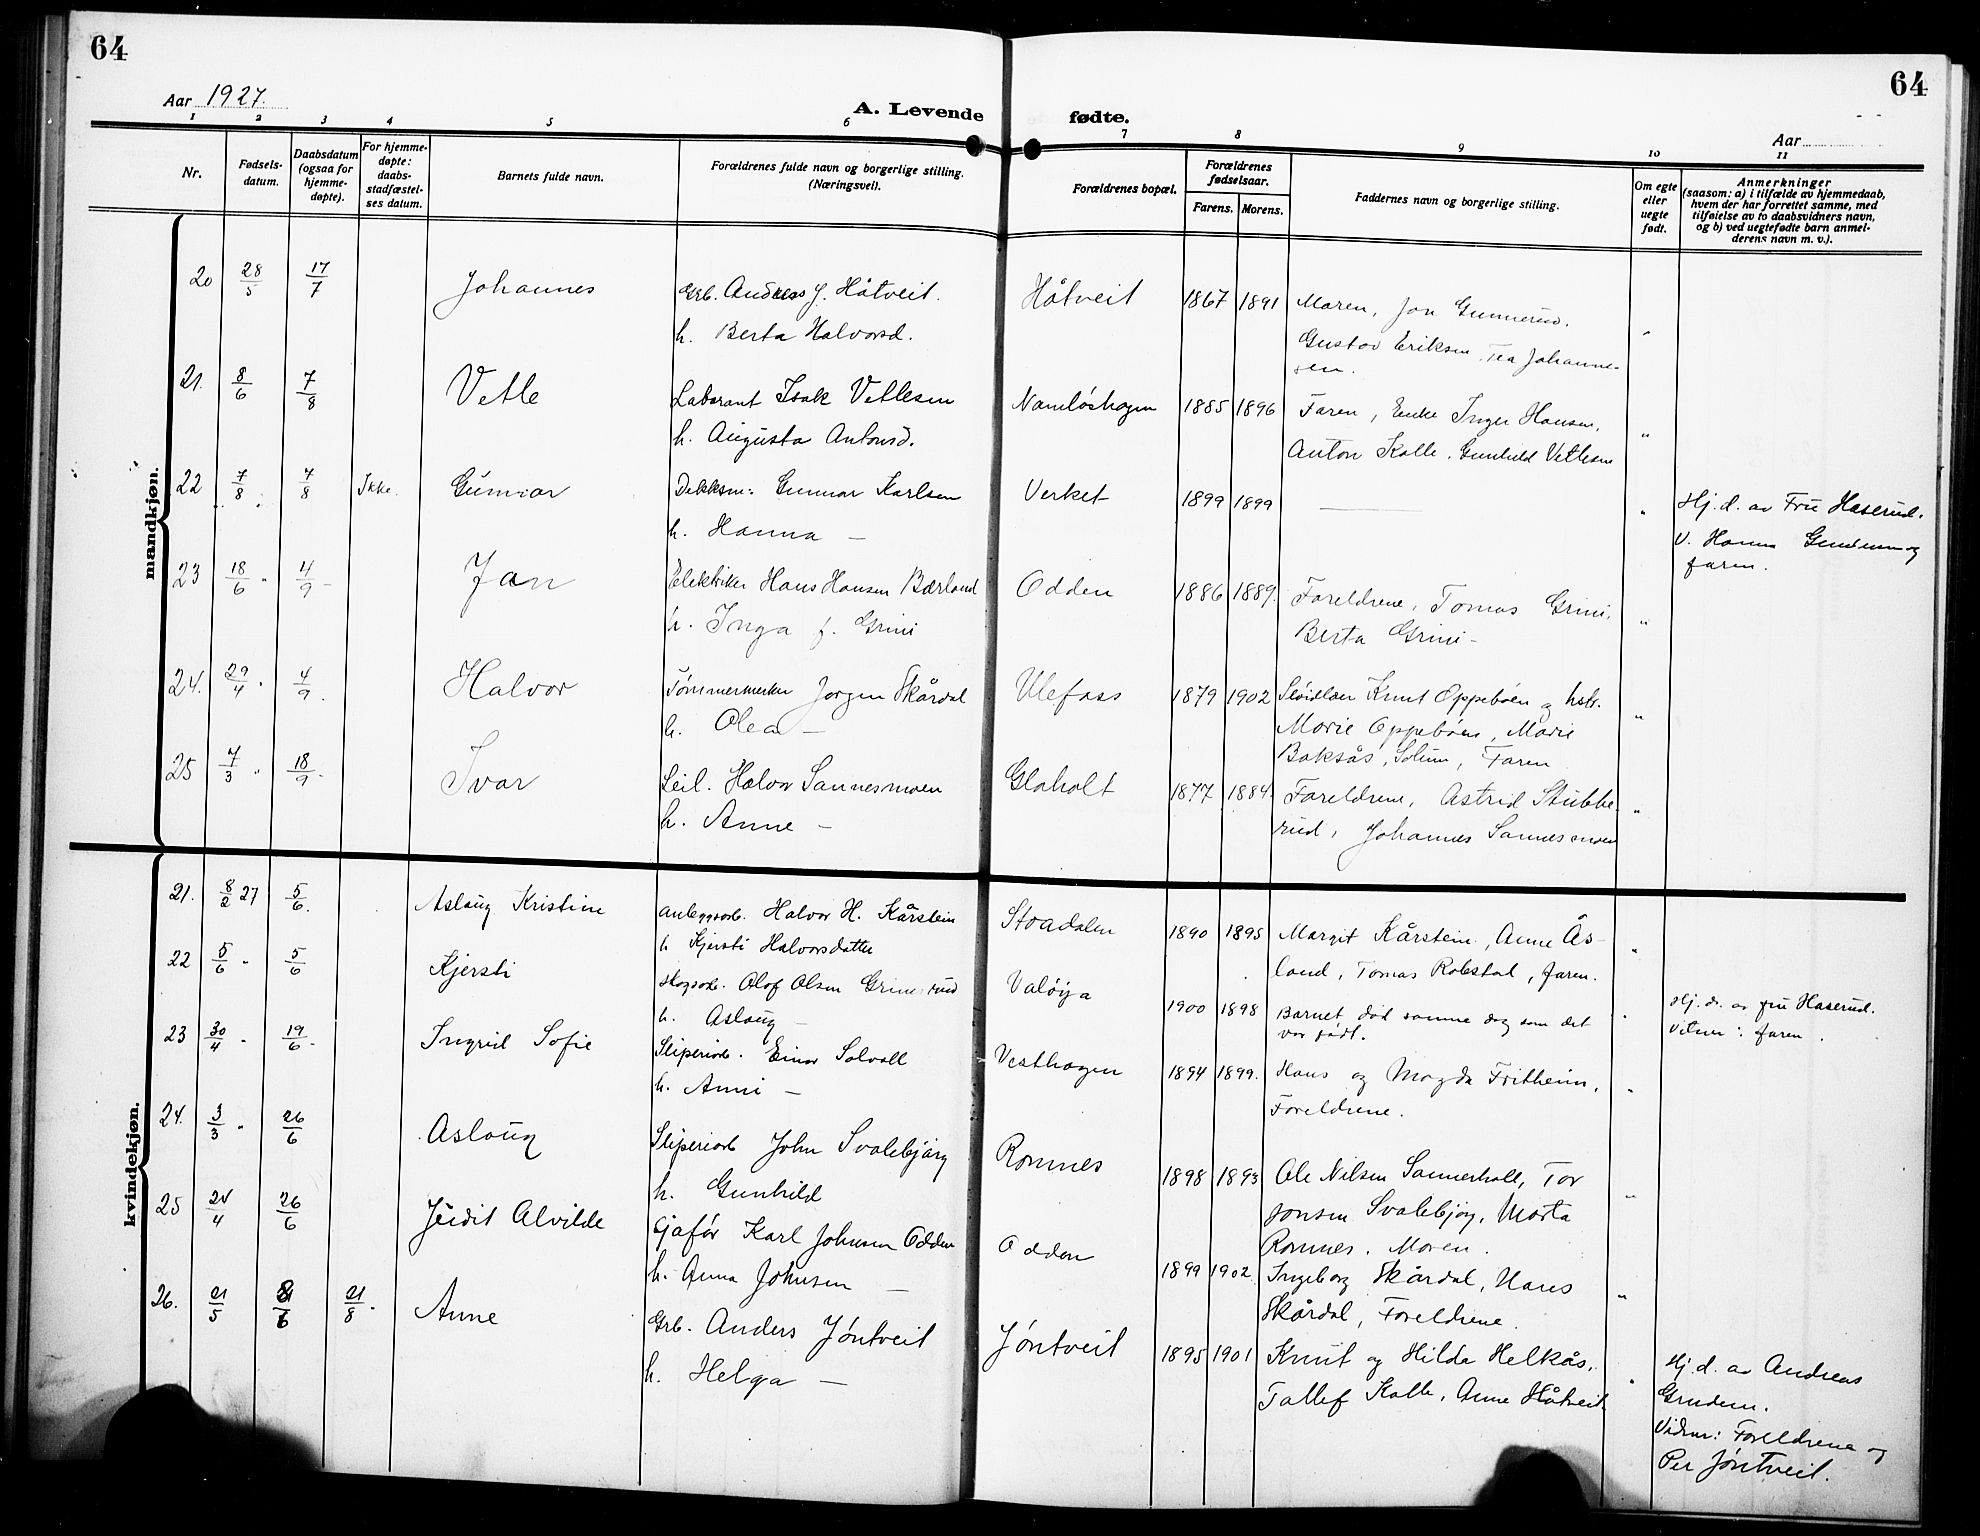 64
64
Aar 1927.
A. Levende fødte.
Aar
1 2 3 4 5 6 7 8 9 10 11
Nr.
Fødsels-
datum.
Daabsdatum
(ogsaa for
hjemme-
døpte).
For hjemme-
døpte:
daabs-
stadfæstel-
ses datum.
Barnets fulde navn.
Forældrenes fulde navn og borgerlige stilling.
(Næringsvei).
Forældrenes bopæl.
Forældrenes
fødselsaar.
Farens. Morens.
Faddernes navn og borgerlige stilling.
Om egte
eller
uegte
født.
Anmerkninger
(saasom: a) i tilfælde av hjemmedaab,
hvem der har forrettet samme, med
tilføielse av to daabsvidners navn,
og b) ved uegtefødte barn anmel-
derens navn m. v.).
mandkjøn.
20 28/5 17/7 Johannes Grb. Andreas J. Håtveit. Håtveit 1867 1891 Maren, Jon Gunnerud. "
h. Berta Halvorsd. Gustav Eriksen. Tea Johanne-
sen.
21. 8/6 7/8 Vetle Laborant Isak Vetlesen Namløshagen 1885 1896 Faren, Enke Inger Hansen, "
h. Augusta Antonsd. Anton Kalle. Gunhild Vetlesen
22 7/8 7/8 Ikke. Gunnar Dekksm: Gunnar Karlsen Verket 1899 1899 — " Hj. d. av Fru Haserud.
h. Hanna — V. Hanna og
faren.
23 18/6 4/9 Jan Elektriker Hans Hansen Bærland Odden 1886 1889. Foreldrene, Tomas Grini, "
h. Inga f. Grini Berta Grini -
24. 29/4 4/9 Halvor Tømmermerker Jørgen Skårdal Ulefoss 1879 1902 Knut Oppebøen og hstr. "
h. Olea — Marie Oppebøen, Marie
Baksås, Solum, Faren
25 7/3 18/9 Ivar Seil. Halvor Sannesmoen Glaholt 1877 1884. Foreldrene, Astrid Stubbe- "
h. Anne — rud, Johannes Sannesmoen
kvindekjøn.
21. 8/2 27 5/6. Aslaug Kristine Anleggsarb. Halvor H. Kårstein Stoadalen 1890 1895 Margit Kårstein, Anne Ås- "
h Kjersti Halvorsdatter land, Tomas Rolestad, faren.
22 5/6 " 5/6 Kjersti Skogsarb. Olof Olsen Grimsrud Valøya 1900 1898 Barnet død samme dag som det " Hj. d. av fru Haserud.
h. Aslaug — var født. Vitne: faren.
23 30/4 " 19/6 - Ingrid Sofie Sliperiarb. Einar Solvoll Vesthagen 1894 1899. Hans og Magda Fritheim, "
h. Anni — Foreldrene.
24. 3/3 " 26/6 Aslaug Sliperiarb John Svalebjørg Romnes 1898 1893 Ole Nilsen Sannerholt, Tor "
h. Gunhild Jonsen Svalebjørg, Marta
Romnes. Moren.
25 24/4 26/6 Judit Alvilde Sjafør Karl Johnsen Odden Odden 1899 1902. Ingeborg Skårdal, Hans "
h. Anna Johnsen — Skårdal, Foreldrene.
26. 21/5 8/6 21/8 - Anne Grb. Anders Jøntveit Jøntveit 1895 1901 Knut og Hilda Helkås, " Hj. d. av Andreas
h. Helga — Tallef Kalle, Anne Håtveit. Grudem.
Vidner: Foreldrene og
Per Jøntveit.